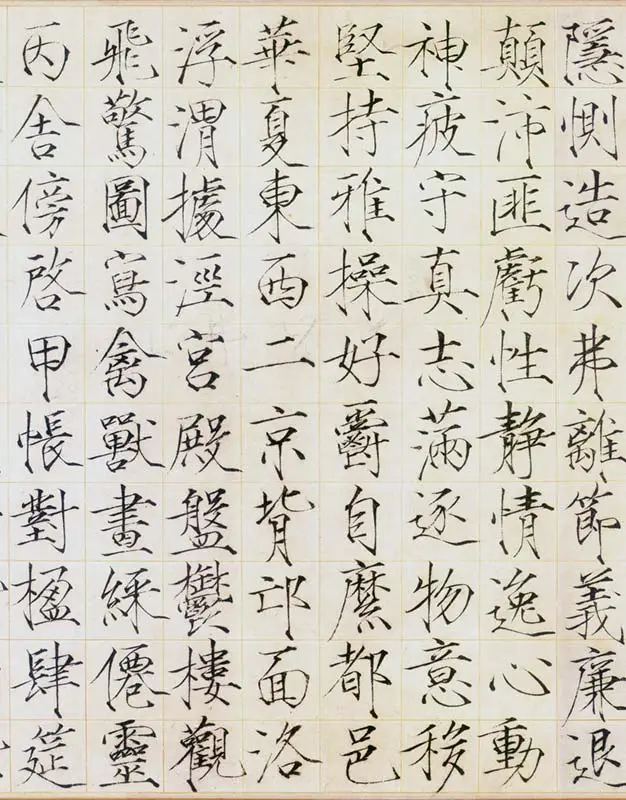 隱惻造次弗離節義廉退
顛沛匪虧性靜情逸心動
神疲守真志滿逐物意移
堅持雅操好爵自縻都邑
華夏東西二京背邙面洛
浮渭據涇宮殿盤鬱樓觀
飛驚圖寫禽獸畫綵僊靈
丙舍傍啓甲帳對楹肆筵